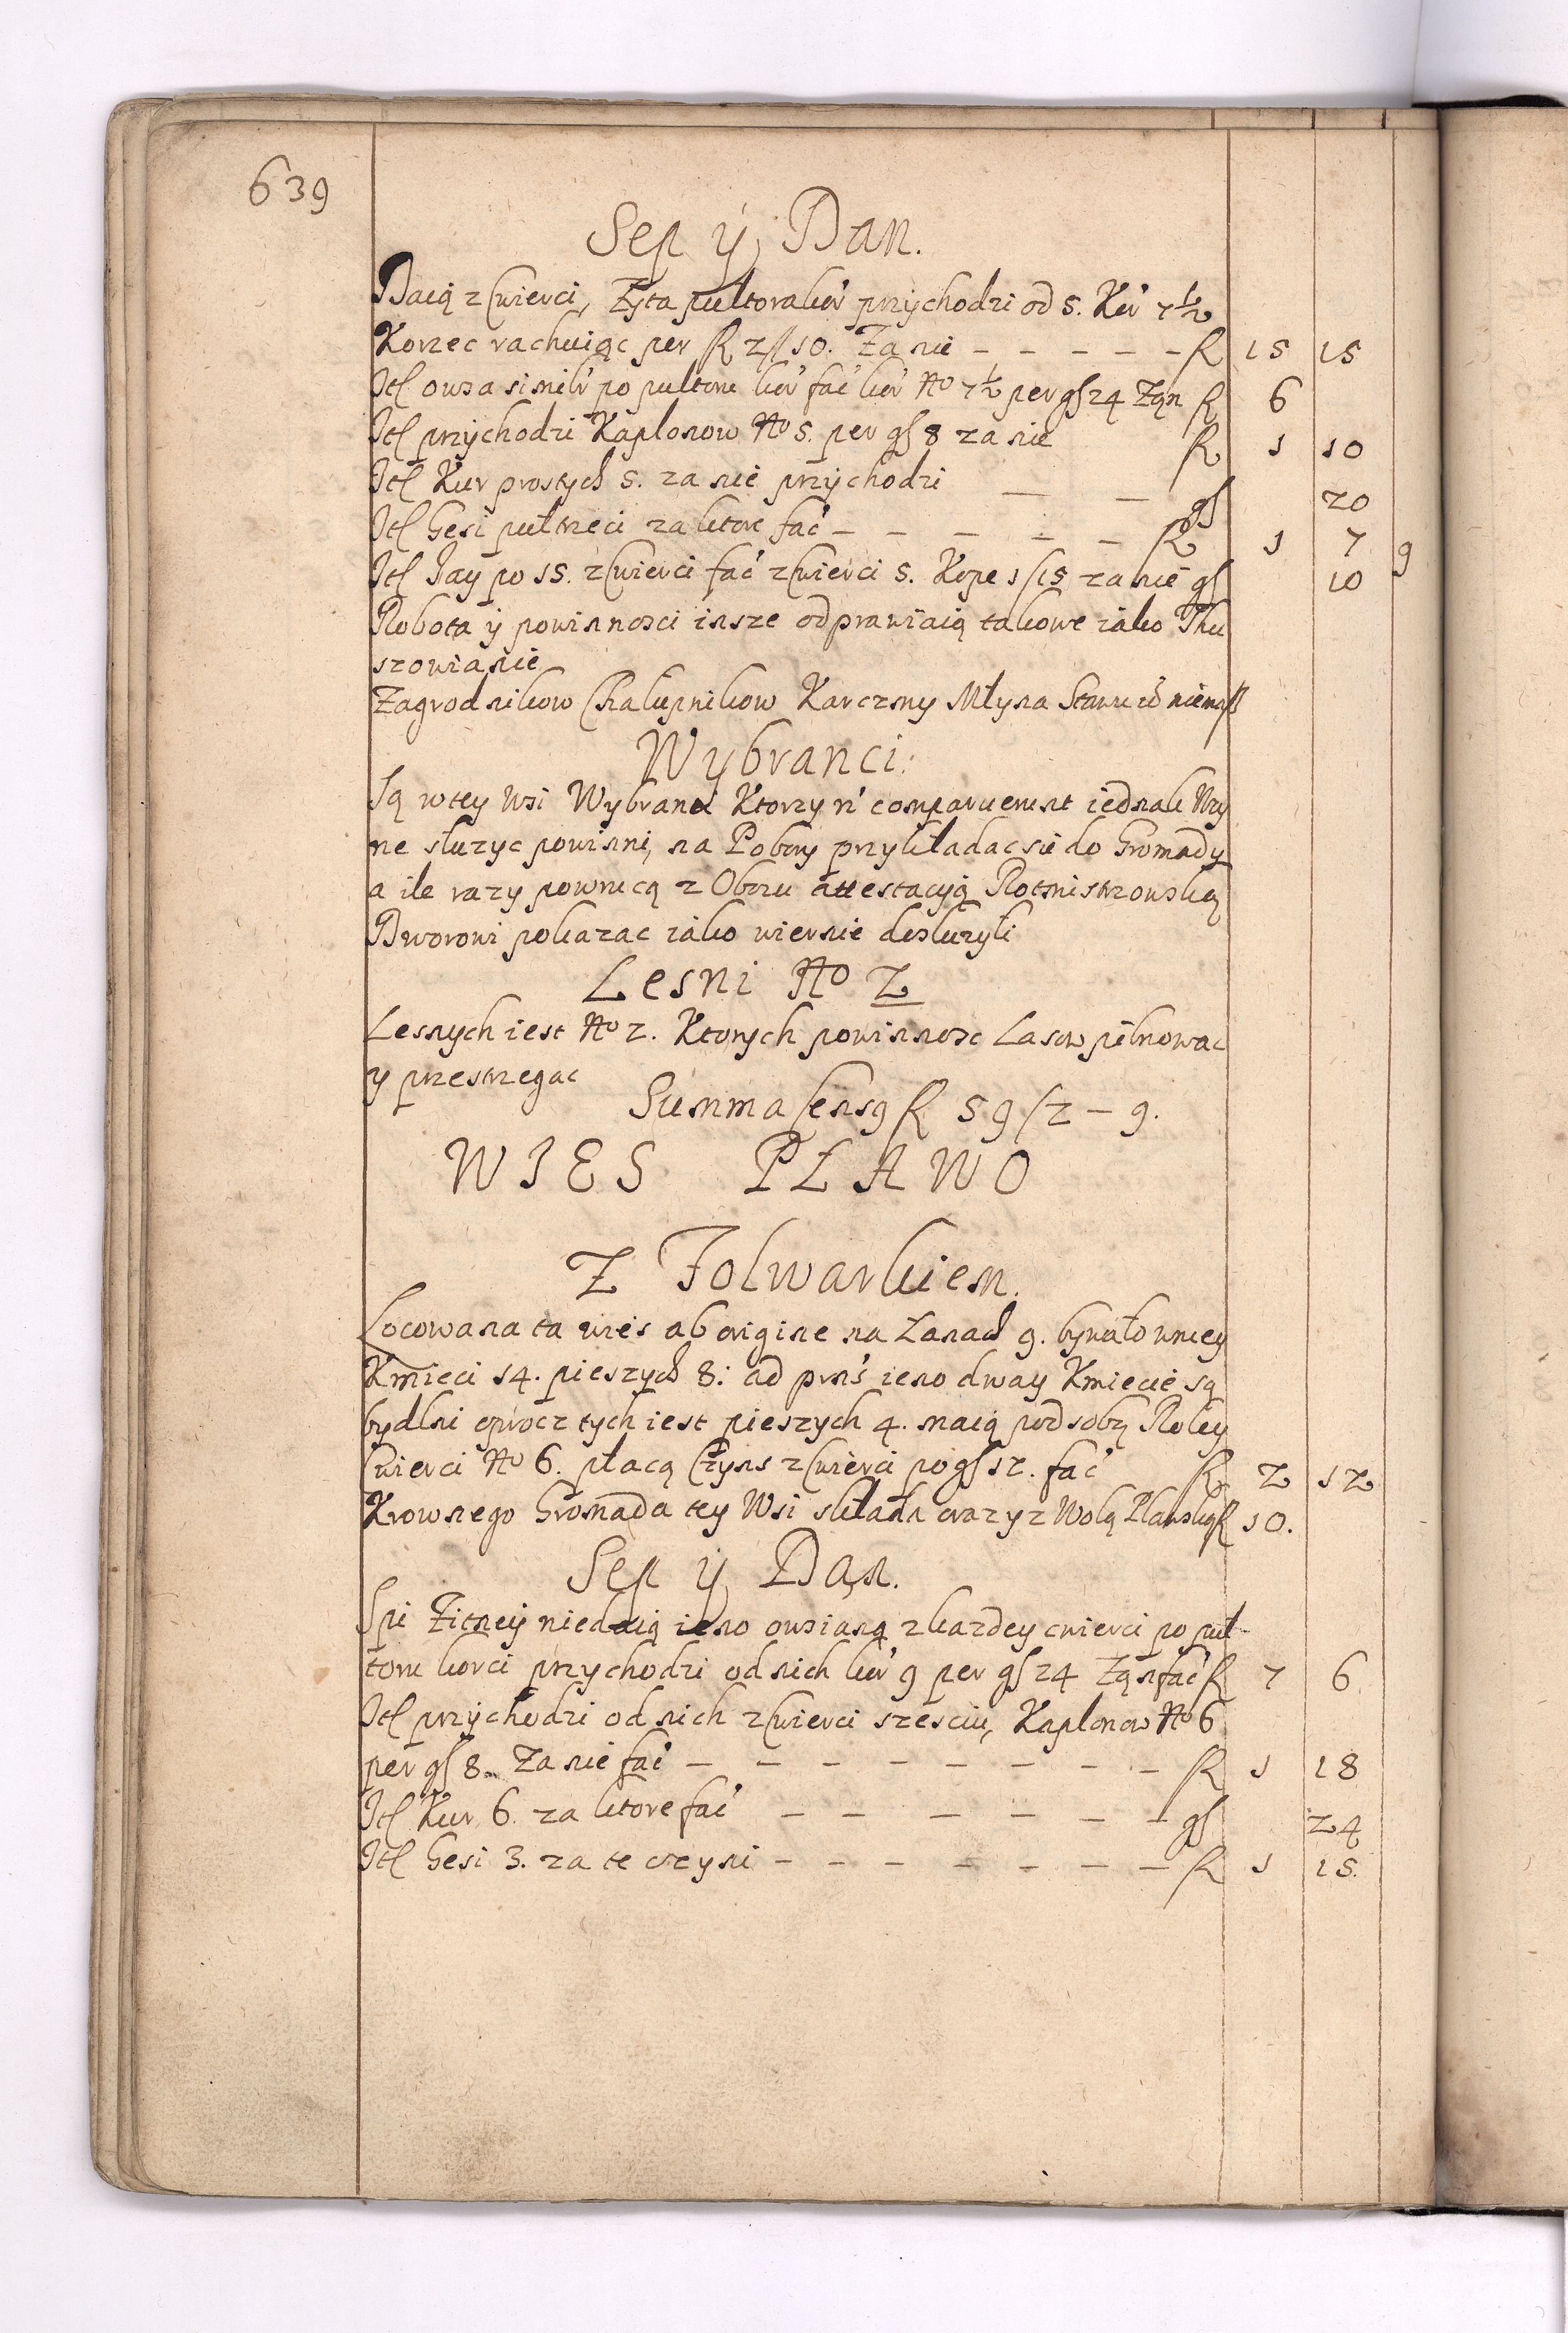 639
Sep ÿ Dan.
Daią z Cwierci, Zyta pultorakor̃ przÿchodzi od 5. Kor̃ 7½
Korzec rachuiąc per fl 2/10. Za nie – – – – – fl 15 15
Itl owsa simil' po pultoru kor̃ fać kor̃ No 7½ per gſ 24 Zan fl 6
Itl przÿchodzi Kaplonow No 5. per gſ 8 za nie fl 1 10
Itl Kur prostych 5. za nie przÿchodzi — — gſ 20
Itl Gesi pułtrzeci za ktore fać – – – – – fl 1 7 9
Itl Jay po 15. z Cwierci fać z Cwierci 5. Kope 1/15 za nie gſ 10
Robota ÿ powinnosci insze odprawiaią takowe iako Thu
szowianie
Zagrodnikow Chalupnikow Karczmy Młyna Stawu niemaſz
Wybranci:
Są w tey Wsi Wybranci Ktorzy n' comparuerunt iednak Woy
ne służyc powinni, na Pobory przykładac sie do Gromady
a ile razy powrucą z Obozu attestacyią Rotmistrzowską
Dworowi pokazac iako wiernie dosłużyli
Lesni No 2
Lesnych iest No 2. Ktorych powinnosc Lasow pilnowac
y przestrzegac
Summa Censg fl 59/2 – 9.
WIES PŁAWO
Z Folwarkiem.
Locowana ta wies ab origine na Łanach 9. bywało wniey
Kmieci 14. pieszych 8: ad prns' ieno dway Kmiecie są
bydlni oprocz tych iest pieszych 4. maią pod sobą Roley
Cwierci No 6. płacą Czyns z Cwierci po gſ 12. fać fl 2 12
Krownego Gromada tey Wsi składa orazy z Wolą Pławską fl 10.
Sep ÿ Dan.
Spi Żitneÿ niedaią ieno owsianą z kazdey cwierci po puł
toru korci przychodzi od nich kor̃ 9 per gſ 24 Zą n fać fl 7 6
Itl przÿchodzi od nich z Cwierci szesciu, Kaplonow No 6
per gſ 8. Za nie fać – – – – – – – – fl 1 18
Itl Kur 6. za ktore fać – – – – – – gſ 24
Itl Gesi 3. za te czyni – – – – – – – fl 1 15.